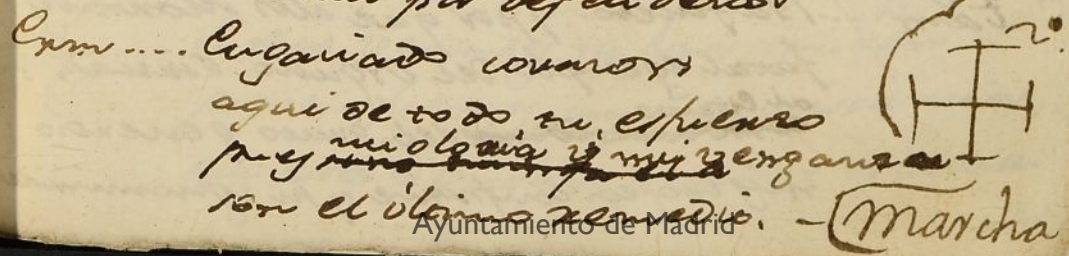 por defenderos
Enm.... Engañado corazon
aqui de todo tu esfuerzo
pues mi gloria y mi venganza
son el último remedio. - Marcha
2º
Ayuntamiento de Madrid